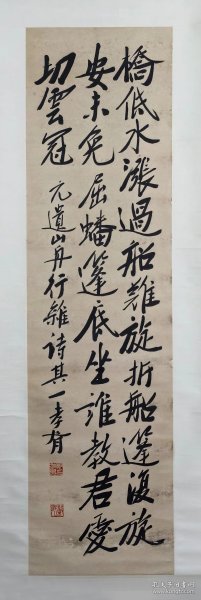 橋低水漲過船難旋折船篷復旋
安未免屈蟠篷底坐誰教君愛
切雲冠
元遺山舟行雜詩其一孝胥